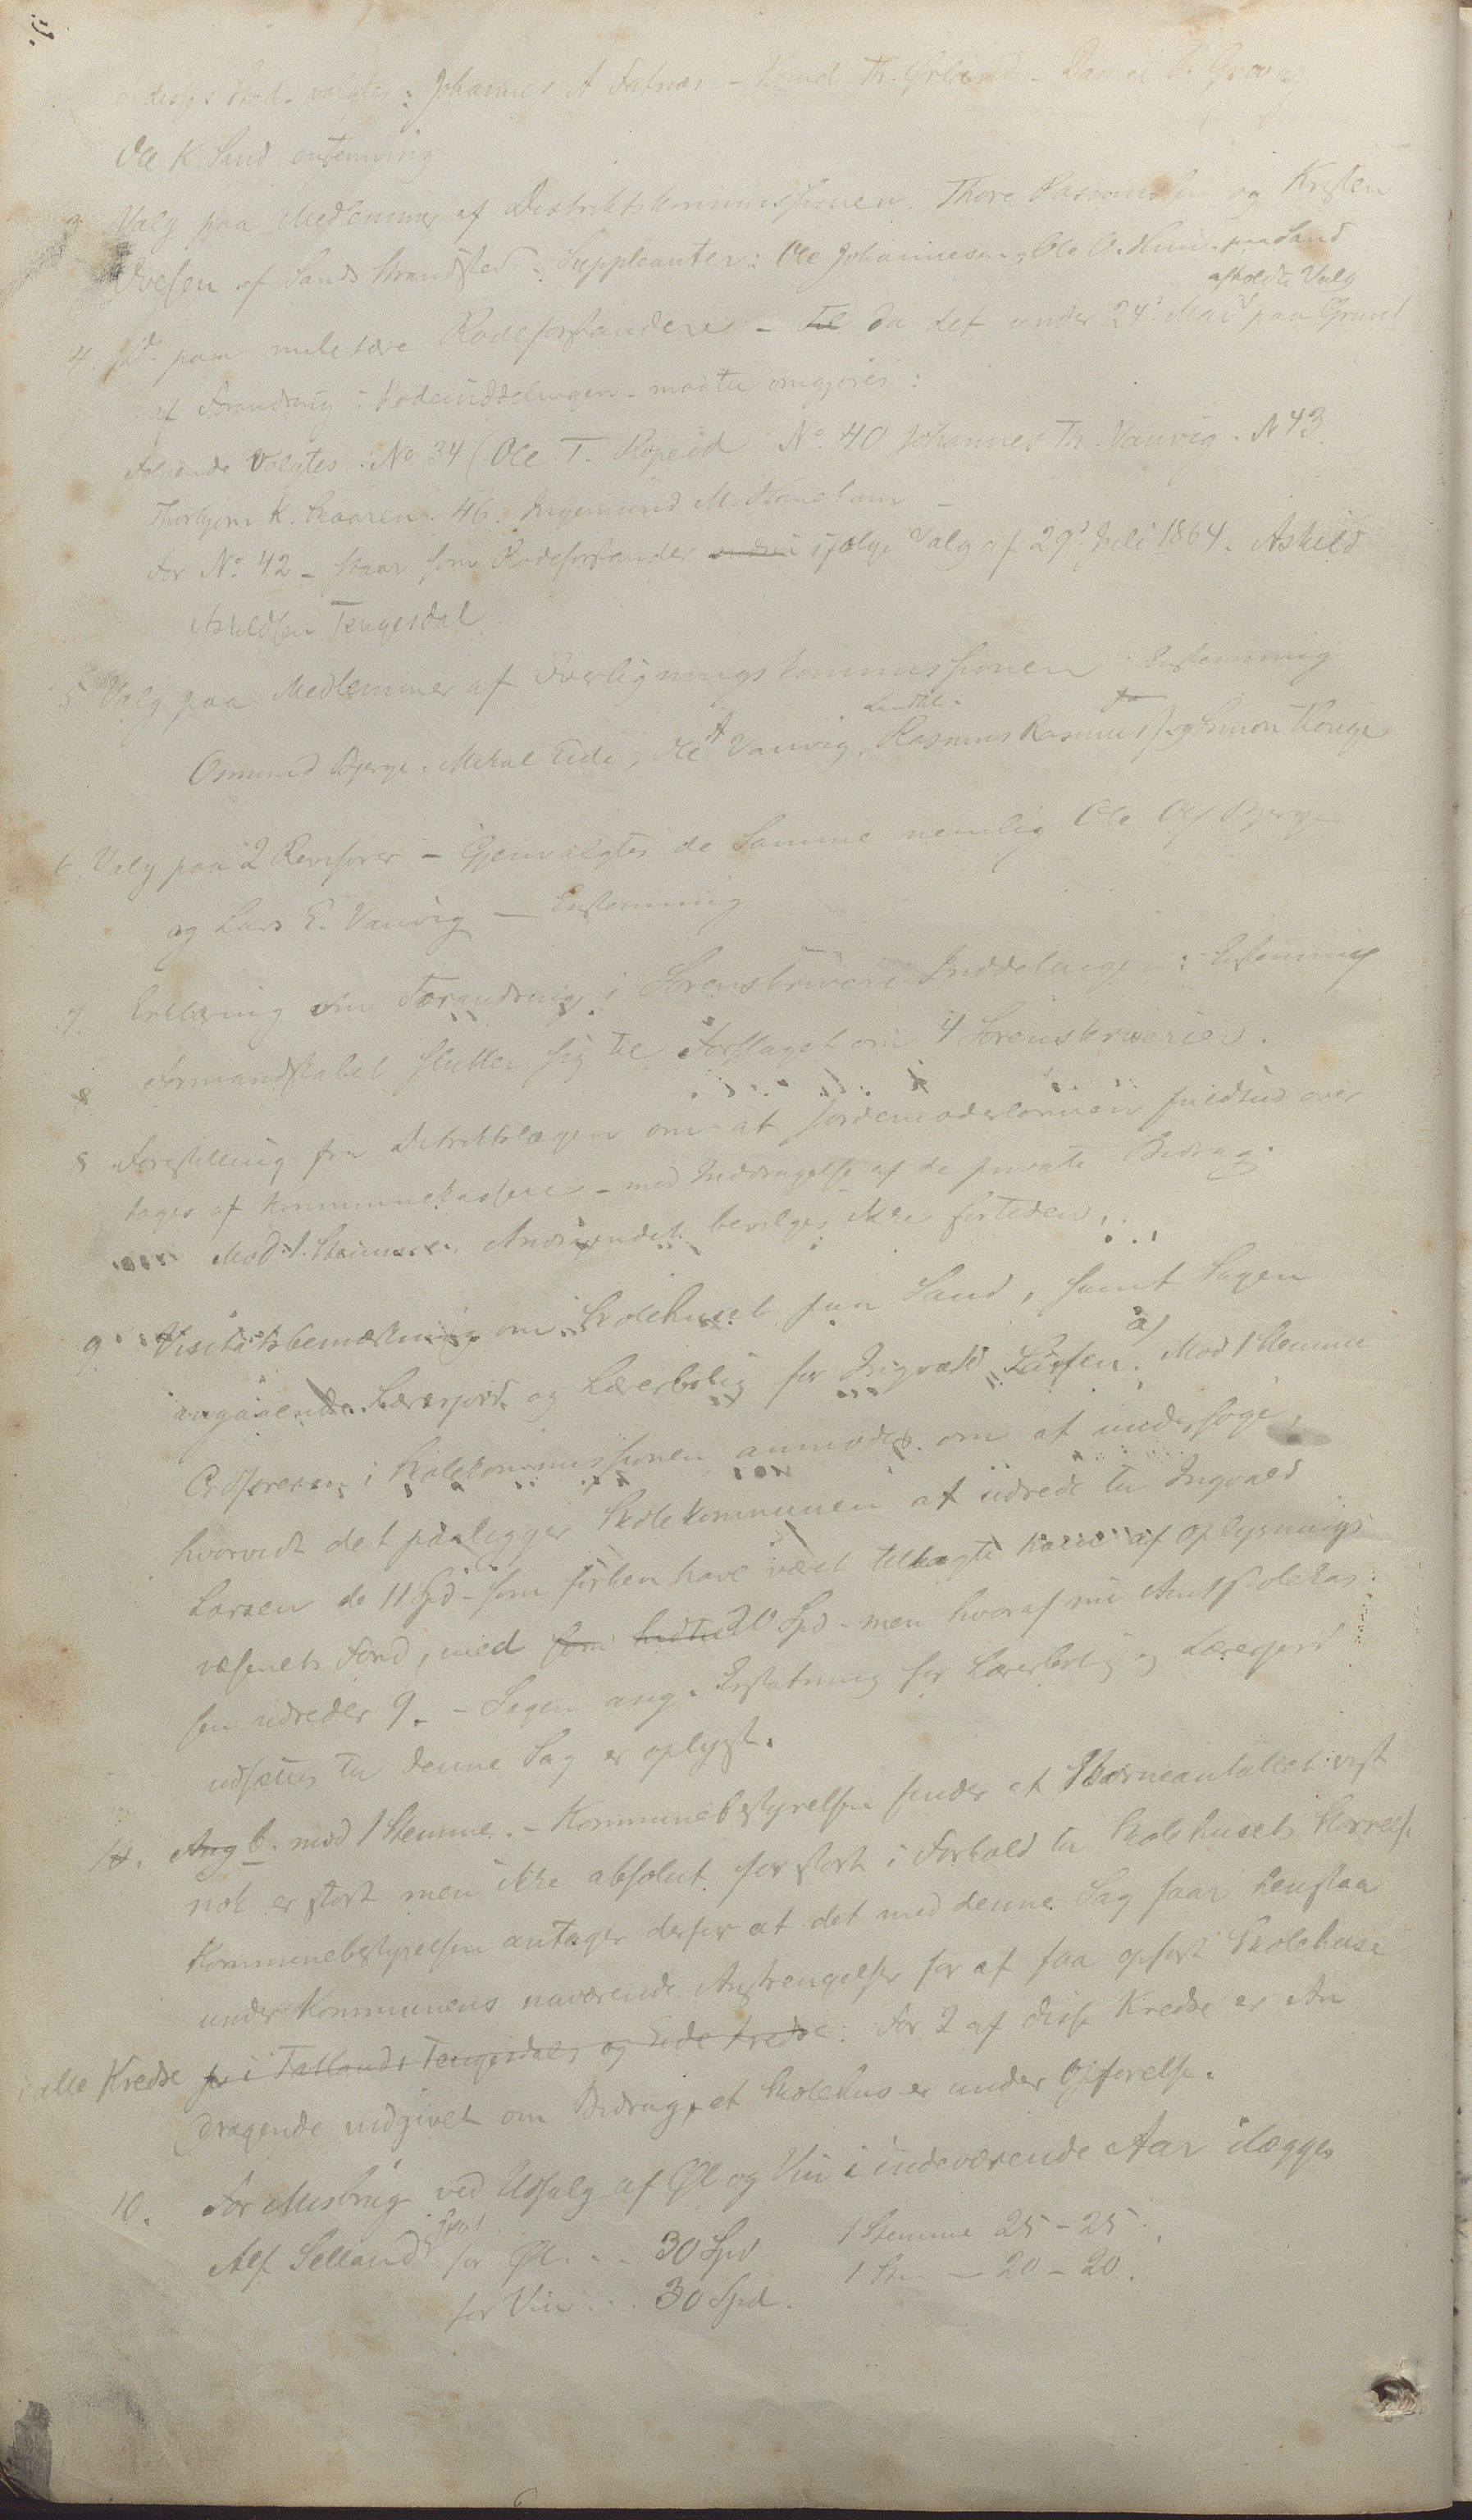 disses Sted valgtes: Johannes A Fatnæs - Knud Th. Ørland - Daniel og
Ole K. Sand enstemmig
3 Valg paa Medlemmer af Distriktskommissionen. Thore Rasmusen og Kristen
Ovesen af Sands Strandsted. Suppleanter: Ole Johannesen, Ole O. paa Sand
4. Do. paa militære Rodeforstandere - Til da det under 24de Mai afholdte Valg paa Grund
af Forandring i Rodeinddelingen maatte omgjøres:
Følgende Valgtes. No 34 (Ole T. Ropeid No. 40 Johannes Th. Vanvig. N 43
Thorbjørn K. Skaaren. 46. Ingemund M. Haneham
For No. 42 - staar som Rodeforstander ifølge Valg af 29de Juli 1864. Askild
Askildsen Tengesdal
5 Valg paa Medlemmer af Overligningskommissionen Enstemmig
Osmund Bjerge. Mikal Eide, Ole A Vanvig, Rasmus Rasmuss. og Simon
6. Valg paa 2 Revisorer - Gjenvalgtes de Samme nemlig Ole Ols Bjerge
og Lars E. Vanvig - Enstemmig
7. Erklæring om Forandring i Sorenskriveri Inddelingen: Enstemmig
Formandskabet slutter sig til Forslaget om 4 Sorenskriverier.
8 Forestilling fra Distriktslægen om at Jordemoderlønnen fuldtud over
tages af Kommunekassen - med Inddragelse af de private Bidrag.
Mod 1 Stemme. Andragendet bevilges ikke fortiden.
9. Visitatsbemærkning om Skolehuset paa Sand, samt Sagen
angaaende Lærerjord og Lærerbolig for Ingvald Larsen. a) Mod 1 Stemme
Ordføreren i Skolekommissionen anmodes om at undersøge,
hvorvidt det paaligger Skolekommunen at udrede til Ingvald
Larsen de 11 Spd - som forhen have været tillagte ham af Oplysnings
væsenets Fond, med som hidtil 20 Spd - men hvoraf nu Amtsskolekas
sen udreder 9. - Sagen ang. Erstatning for Lærerbolig og Lærerjord
udsættes til denne Sag er oplyst.
10. Ang b. mod 1 Stemme. - Kommunebestyrelsen finder at Børneantallet vist
nok er stort men ikke absolut for stort i Forhold til Skolehusets Størrelse
Kommunebestyrelsen antager derfor at det med denne Sag faar henstaa
under Kommunens nuværende Anstrengelser for at faa opført Skolehuse
i alle Kredse for i Tatlands Tengesdals og Eide Kredse. For 2 af disse Kredse er An
dragende indgivet om Bidrag, et Skolehus er under Opførelse.
10. For Misbrug ved Udsalg af Øl og Vin i indeværende Aar ilægges
Alf Selland for Øl... 30 Spd 1 Stemme 25 - 25
for Vin... 30 Spd. 1 St. - 20 - 20.